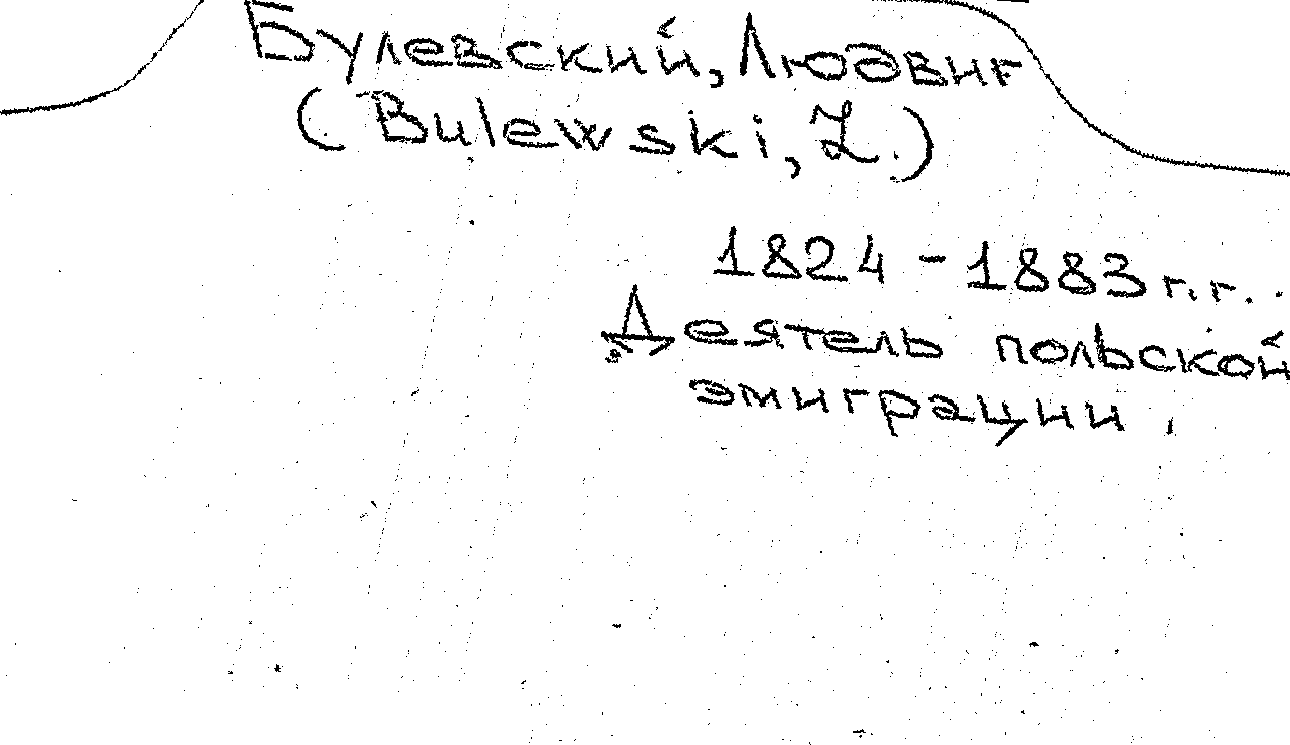 Булевский, Людвиг
(Bulewski, L.)
1824 - 1883 г.г.
Деятель польской
эмиграции.